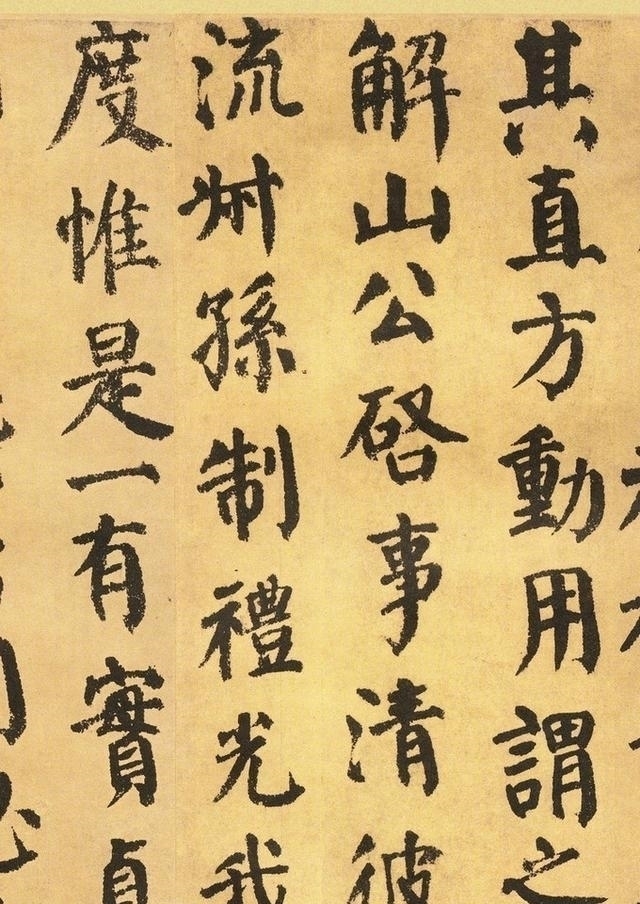 其直方動用謂之
解山公啓事清彼
流叔孫制禮光我
度惟是一有實貞